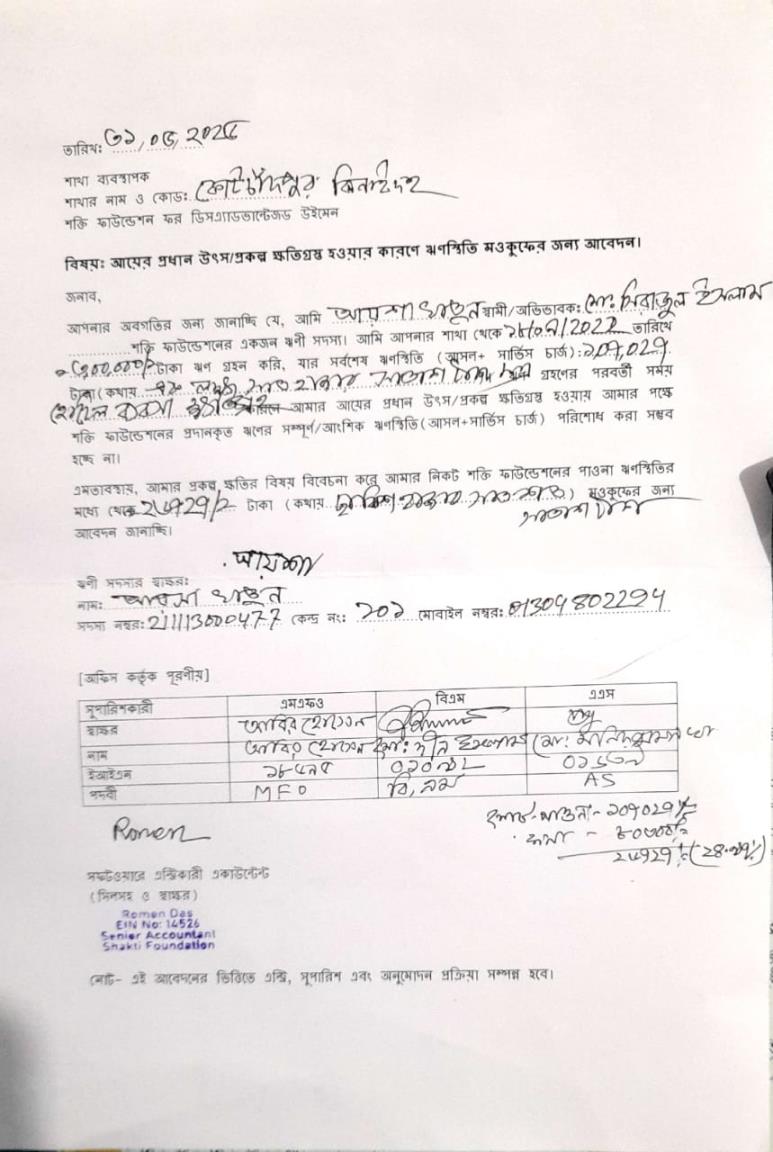 তারিখ: ৩১,০৫,২০২৫
শাখা ব্যবস্থাপক
শাখার নাম ও কোড: কোটচাঁদপুর ঝিনাইদহ
শক্তি ফাউন্ডেশন ফর ডিসএ্যাডভান্টেজড উইমেন
বিষয়: আয়ের প্রধান উৎস/প্রকল্প ক্ষতিগ্রস্ত হওয়ার কারণে ঋণস্থিতি মওকুফের জন্য আবেদন।
জনাব,
আপনার অবগতির জন্য জানাচ্ছি যে, আমি আয়শা খাতুন স্বামী/অভিভাবক: মো: সিরাজুল ইসলাম
শক্তি ফাউন্ডেশনের একজন ঋণী সদস্য। আমি আপনার শাখা থেকে তারিখে
টাকা ঋণ গ্রহন করি, যার সর্বশেষ ঋণস্থিতি (আসল+ সার্ভিস চার্জ): ১০৭,০২৭
টাকা (কথায় এক লক্ষ সাত হাজার সাতাশ টাকা গ্রহণের পরবর্তী সময়
আমার আয়ের প্রধান উৎস/প্রকল্প ক্ষতিগ্রস্ত হওয়ায় আমার পক্ষে
শক্তি ফাউন্ডেশনের প্রদানকৃত ঋণের সম্পূর্ণ/আংশিক ঋণস্থিতি(আসল+সার্ভিস চার্জ) পরিশোধ করা সম্ভব
হচ্ছে না।
এমতাবস্থায়, আমার প্রকল্প ক্ষতির বিষয় বিবেচনা করে আমার নিকট শক্তি ফাউন্ডেশনের পাওনা ঋণস্থিতির
মধ্যে থেকে টাকা (কথায় হাজার সাত শত) মওকুফের জন্য
সাতাশ টাকা
আবেদন জানাচ্ছি।
আয়শা
ঋণী সদস্যর স্বাক্ষর:
নাম: আয়সা খাতুন
সদস্য নম্বর: 21113000477 কেন্দ্র নং: ১০১ মোবাইল নম্বর: 01304802294
[অফিস কর্তৃক পূরণীয়]
সুপারিশকারী এমএফও বিএম এএস
স্বাক্ষর আবির হোসেন
নাম আবির হোসেন
ইআইএন
পদবী MFO বি,এম AS
১০৭০২৭/=
Romen
সফটওয়ারে এন্ট্রিকারী একাউন্টেন্ট
(সিলসহ ও স্বাক্ষর)
Romen Das
EIN No: 14526
Senior Accountant
Shakti Foundation
নোট- এই আবেদনের ভিত্তিতে এন্ট্রি, সুপারিশ এবং অনুমোদন প্রক্রিয়া সম্পন্ন হবে।